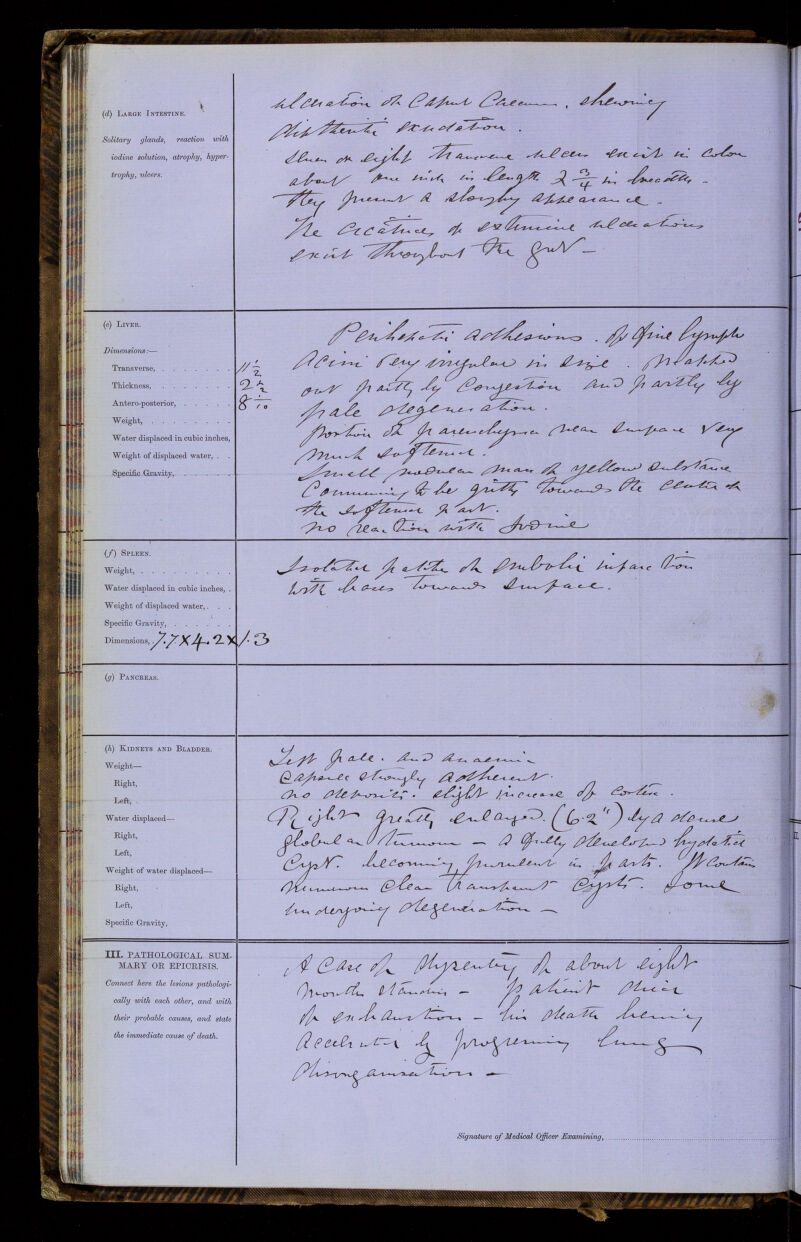 (d) Large Intestine.
Solitary glands, reaction with
iodine solution, atrophy, hyper-
trophy, ulcers.
ulceration of Caput Caecum, shewing
diphtheritic exudation.
Seven or eight transverse ulcers exist in colon
about one inch in length & 3/4 in breadth -
They present a sloughy appearance -
The Cicatrices of extensive ulcerations
exist throughout the gut -
(e) Liver.
Dimensions:—
Transverse, 11 1/2
Thickness, 2
Antero-posterior, 8
Weight,
Water displaced in cubic inches,
Weight of displaced water,
Specific Gravity,
Perihepatic adhesions. of fine lymph
Acini very irregular in size. Mapped
out partly by Congestion and partly by
pale degeneration.
Portion of parenchyma near surface very
much softened.
Small nodular mass of yellow substance
Commencing to be gritty towards the center of
the softened part.
no reaction with Iodine
(f) Spleen.
Weight,
Water displaced in cubic inches,
Weight of displaced water,
Specific Gravity,
Dimensions, 7.7 X 4.2 X 1.3
Isolated patche of embolic infarction
with bases towards surface.
(g) Pancreas.
(h) Kidneys and Bladder.
Weight—
Right,
Left,
Water displaced—
Right,
Left,
Weight of water displaced—
Right,
Left,
Specific Gravity,
Left pale. and anaemic
Capsule strongly adherent.
no deposits. slight increase of cortex.
Right greatly enlarged. (6.2") by a dense
globular tumour - a fully developed hydatid
Cyst becoming purulent in parts. It contains
numerous clear transparent Cysts. Some
undergoing degeneration -
III. PATHOLOGICAL SUM-
MARY OR EPICRISIS.
Connect here the lesions pathologi-
cally with each other, and with
their probable causes, and state
the immediate cause of death.
A Case of dysentery of about eight
months standing - patient died
of exhaustion - his death being
accelerated by progressing lung
disorganisation -
Signature of Medical Officer Examining,